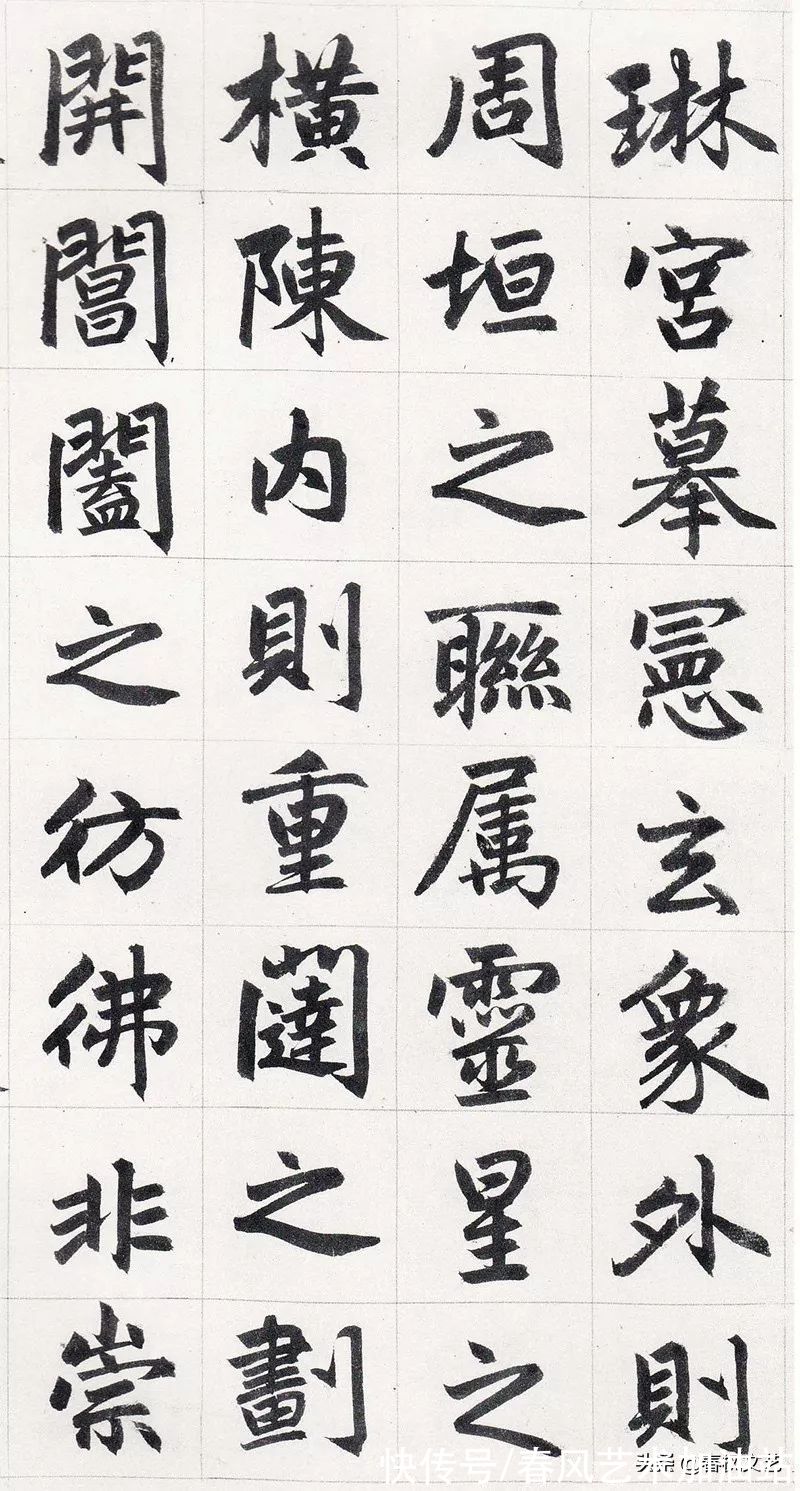 琳宮摹憲玄象外則
周垣之聯属靈星之
横陳内則重闥之劃
開閶闔之彷彿非崇
快传号/春风艺术加油站
头条 @春秋文艺